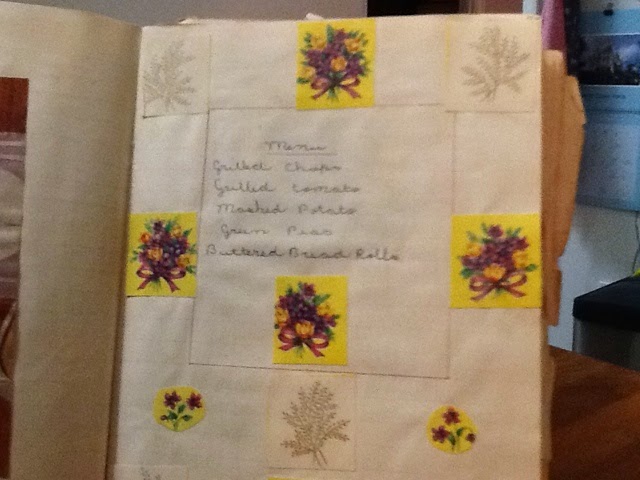 Menu
Grilled Chops
Grilled tomato
Mashed Potato
Green Peas
Buttered Bread Rolls